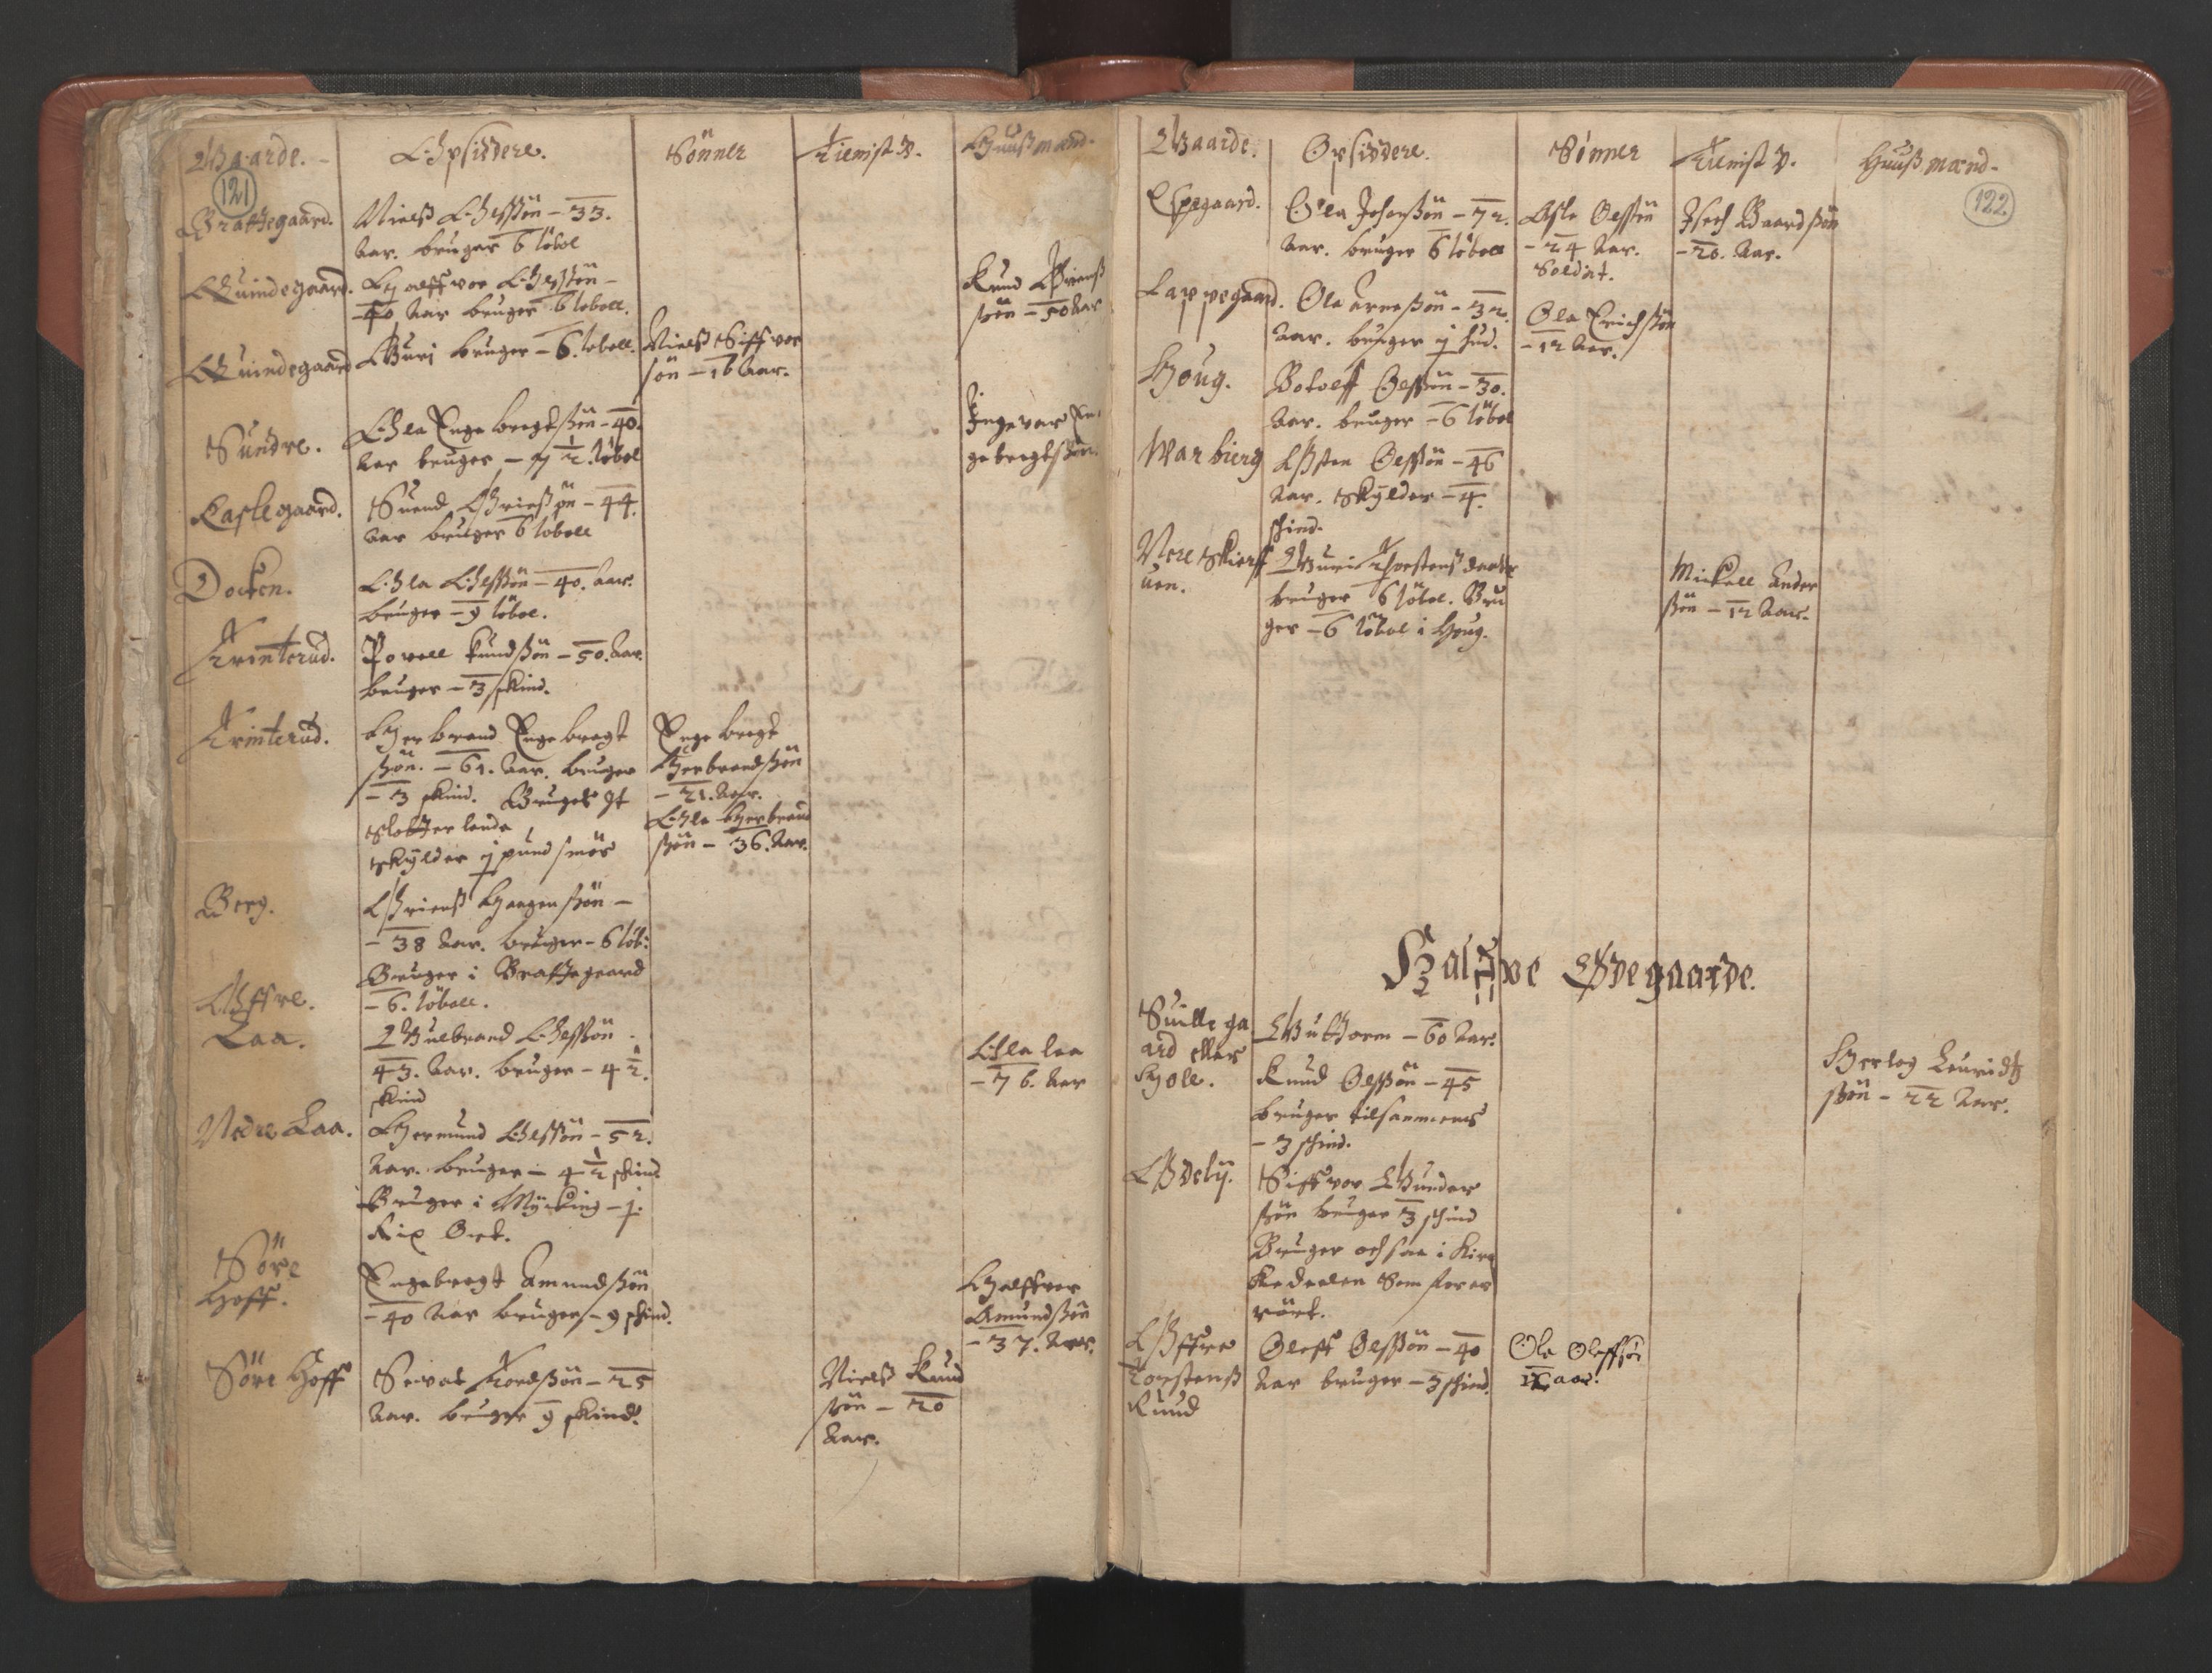 Gaarde.
Opsiddere.
Sönner
Tienist D.
Huußmænd.
121
Brattegaard.
Nielß Olßön – 33.
Aar. bruger 6 löbol
Quindegaard.
Halffvor
40 Aar bruger 6 löboll.
Knud
ßön – 50 Aar
Quindegaard
Guri bruger – 6. löboll.
Nielß Siffvor
sön – 16 Aar.
Sundre.
Ola Engebregtßön – 40.
Aar bruger – 7 1/2 löbol
Ingevar En
gebregtßön.
Kaslegaard.
Suend – 44.
Aar bruger 6 löboll
Docken.
Ola Olßön – 40. Aar.
bruger – 9 löbol.
Trinterud.
Povell Knudßön – 50. Aar.
bruger – 3 skind.
Trinterud.
Herbrand Engebregt
ßön. – 61. Aar. bruger
– 3 skind. Bruget Jt
Slotter lende
Skylder j pund smör
Engebregt
Herbrandßön
– 21. Aar.
Ola Herbrand
ßön – 36. Aar.
Berg.
Haagenßön –
– 38 Aar. bruger – 6 löb:
Bruger i Brattegaard
– 6. löboll.
Öffre
Laa.
Gulbrand Olßön
43. Aar. bruger – 4 1/2.
skind
Ola Laa
– 76. Aar
Nedre Laa.
Hermund Olßön – 52.
Aar. bruger – 4 1/2 skind
Bruger i Mycking – j.
Rix Ort.
Söre
Hoff.
Engebregt Amundßön
– 40 Aar bruger – 9 skind.
Halffvor
Amundßön
– 37. Aar.
Söre Hoff
Sevat Tordßön – 25
Aar. bruger 9 skind.
Nielß Knud
ßön – 20
Aar.
Gaarde.
Opsiddere.
Sönner
Tienist D.
Huußmænd.
122
Espegaard.
Ola Johanßön – 72.
Aar. bruger 6 löboll
Asle Olßön
– 24 Aar.
Soldat.
Baardßön
– 20. Aar.
Lappegaard.
Ola Arneßön – 32.
Aar. bruger j hud.
Ola Erichßön
– 12 Aar.
Houg.
Botolff Olßön – 30.
Aar. bruger – 6 löbol
Warbierg
Östen Olßön – 46
Aar. Skylder – 4.
skind.
Nere Skierff
uen.
Guri Thorstens daater
bruger 6 löbol. Bru
ger – 6 löbol i Houg.
Mickell Ander
ßön – 12 Aar.
Halffve Ödegaarde.
Suillega
ard eller
Holl.
Guttorm – 60 Aar.
Knud Olßön – 45
bruger tilsammens
– 3 skind.
Herlog Lauridtz
ßön – 22 Aar.
Ödely.
Siffvor Gunder
ßön bruger 3 skind
Bruger ochsaa i Kirc
kedeelen Som för er
rört.
Öffre
Torstenß
Ruud
Oleff Olßön – 40
Aar bruger – 3 skind.
Ole Oleffsön
12 aar.